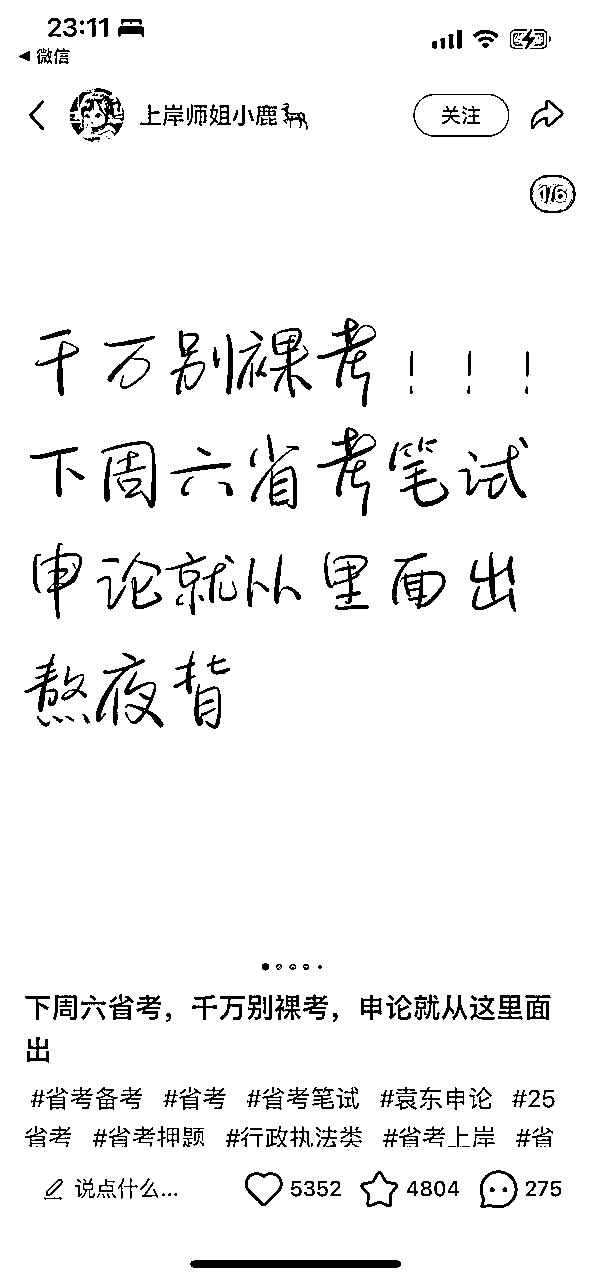 23:11
微信
上岸师姐小鹿🦌
关注
1/6
千万别裸考！！！
下周六省考笔试
申论就从里面出
熬夜背
下周六省考，千万别裸考，申论就从这里面
出
#省考备考 #省考 #省考笔试 #袁东申论 #25
省考 #省考押题 #行政执法类 #省考上岸 #省
说点什么... 5352 4804 275